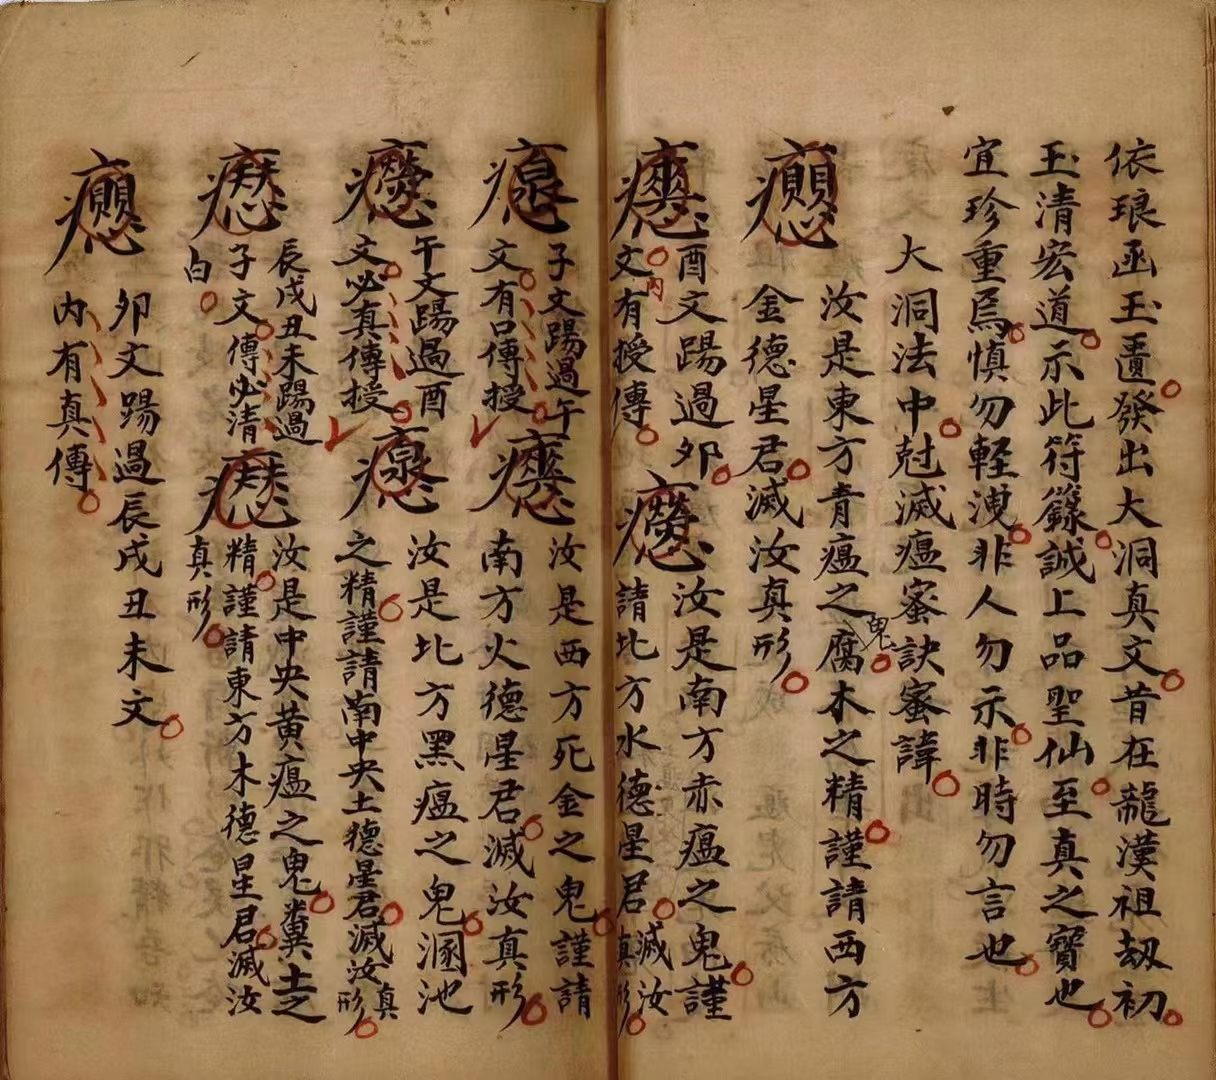 依琅函玉匱發出大洞真文昔在龍漢祖劫初
玉清宏道示此符籙誠上品聖仙至真之寶也
宜珍重焉慎勿軽洩非人勿示非時勿言也
大洞法中尅滅瘟蜜訣蜜諱
汝是東方青瘟之鬼腐木之精謹請西方
金德星君滅汝真形
酉文踼過夘
文内有授傳
汝是南方赤瘟之鬼謹
請北方水德星君滅汝真形
子文踼過午
文有口傳授
汝是西方死金之鬼謹請
南方火德星君滅汝真形
午文踼過酉
文必真傳授
汝是北方黑瘟之鬼溷池
之精謹請南中央土德星君滅汝真形
辰戌丑未踼過
子文傳必清
白
汝是中央黄瘟之鬼糞土之
精謹請東方木德星君滅汝
真形
夘文踼過辰戌丑未文
内有真傳